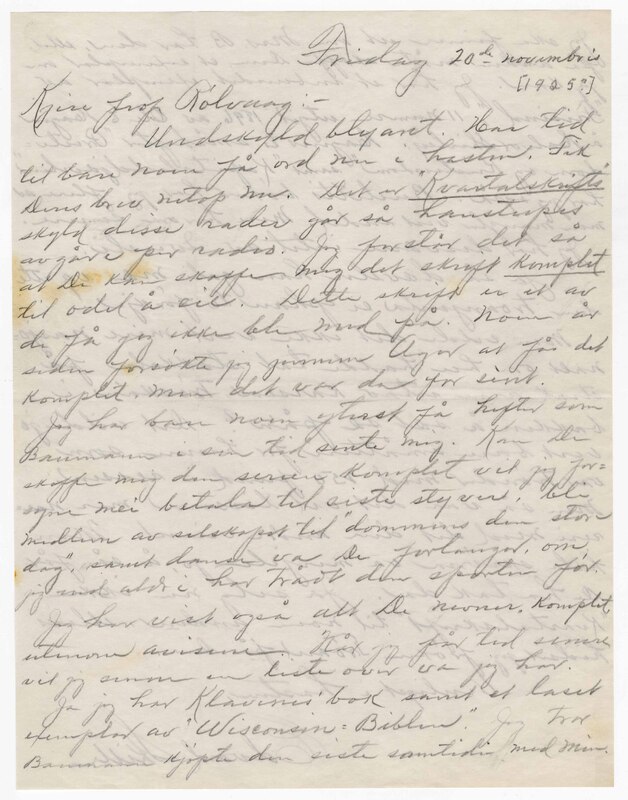 Friday 20de novembris
[1925?]
Kjære prof Rölvaag:-
Undskyld blyant. Har tid
til bare noen få ord nu i hasten. Fik
Deres brev netop nu. Det er "Kvartalskrifts"
skyld disse rader går så
avgåre per radio. Jeg forstår det så
at De kan skaffe mig det skrift komplet
til odel å eie. Dette skrift er et av
de få jeg ikke ble med på. Noen år
siden forsökte jeg jennem Ager at få det
komplet men det var da for sent.
Jeg har bare noen yterst få hefter som
Baumann i sin tid sente mig. Kan De
skaffe mig den serien komplet vil jeg for=
syne mei betala til siste styver, bli
medlem av selskapet til "dommens den store
dag", samt danse va De forlanger, om
jeg end aldri har trådt den sporten för.
Jeg har vist også alt De nevner, komplet,
utenom avisene. Når jeg får tid senere
vil jeg senne en liste over va jeg har.
Ja jeg har Klavenes' bok samt et laset
exemplar av "Wisconsin=Biblen". Jeg tror
Baumann kjöpte den siste samtidi med min.